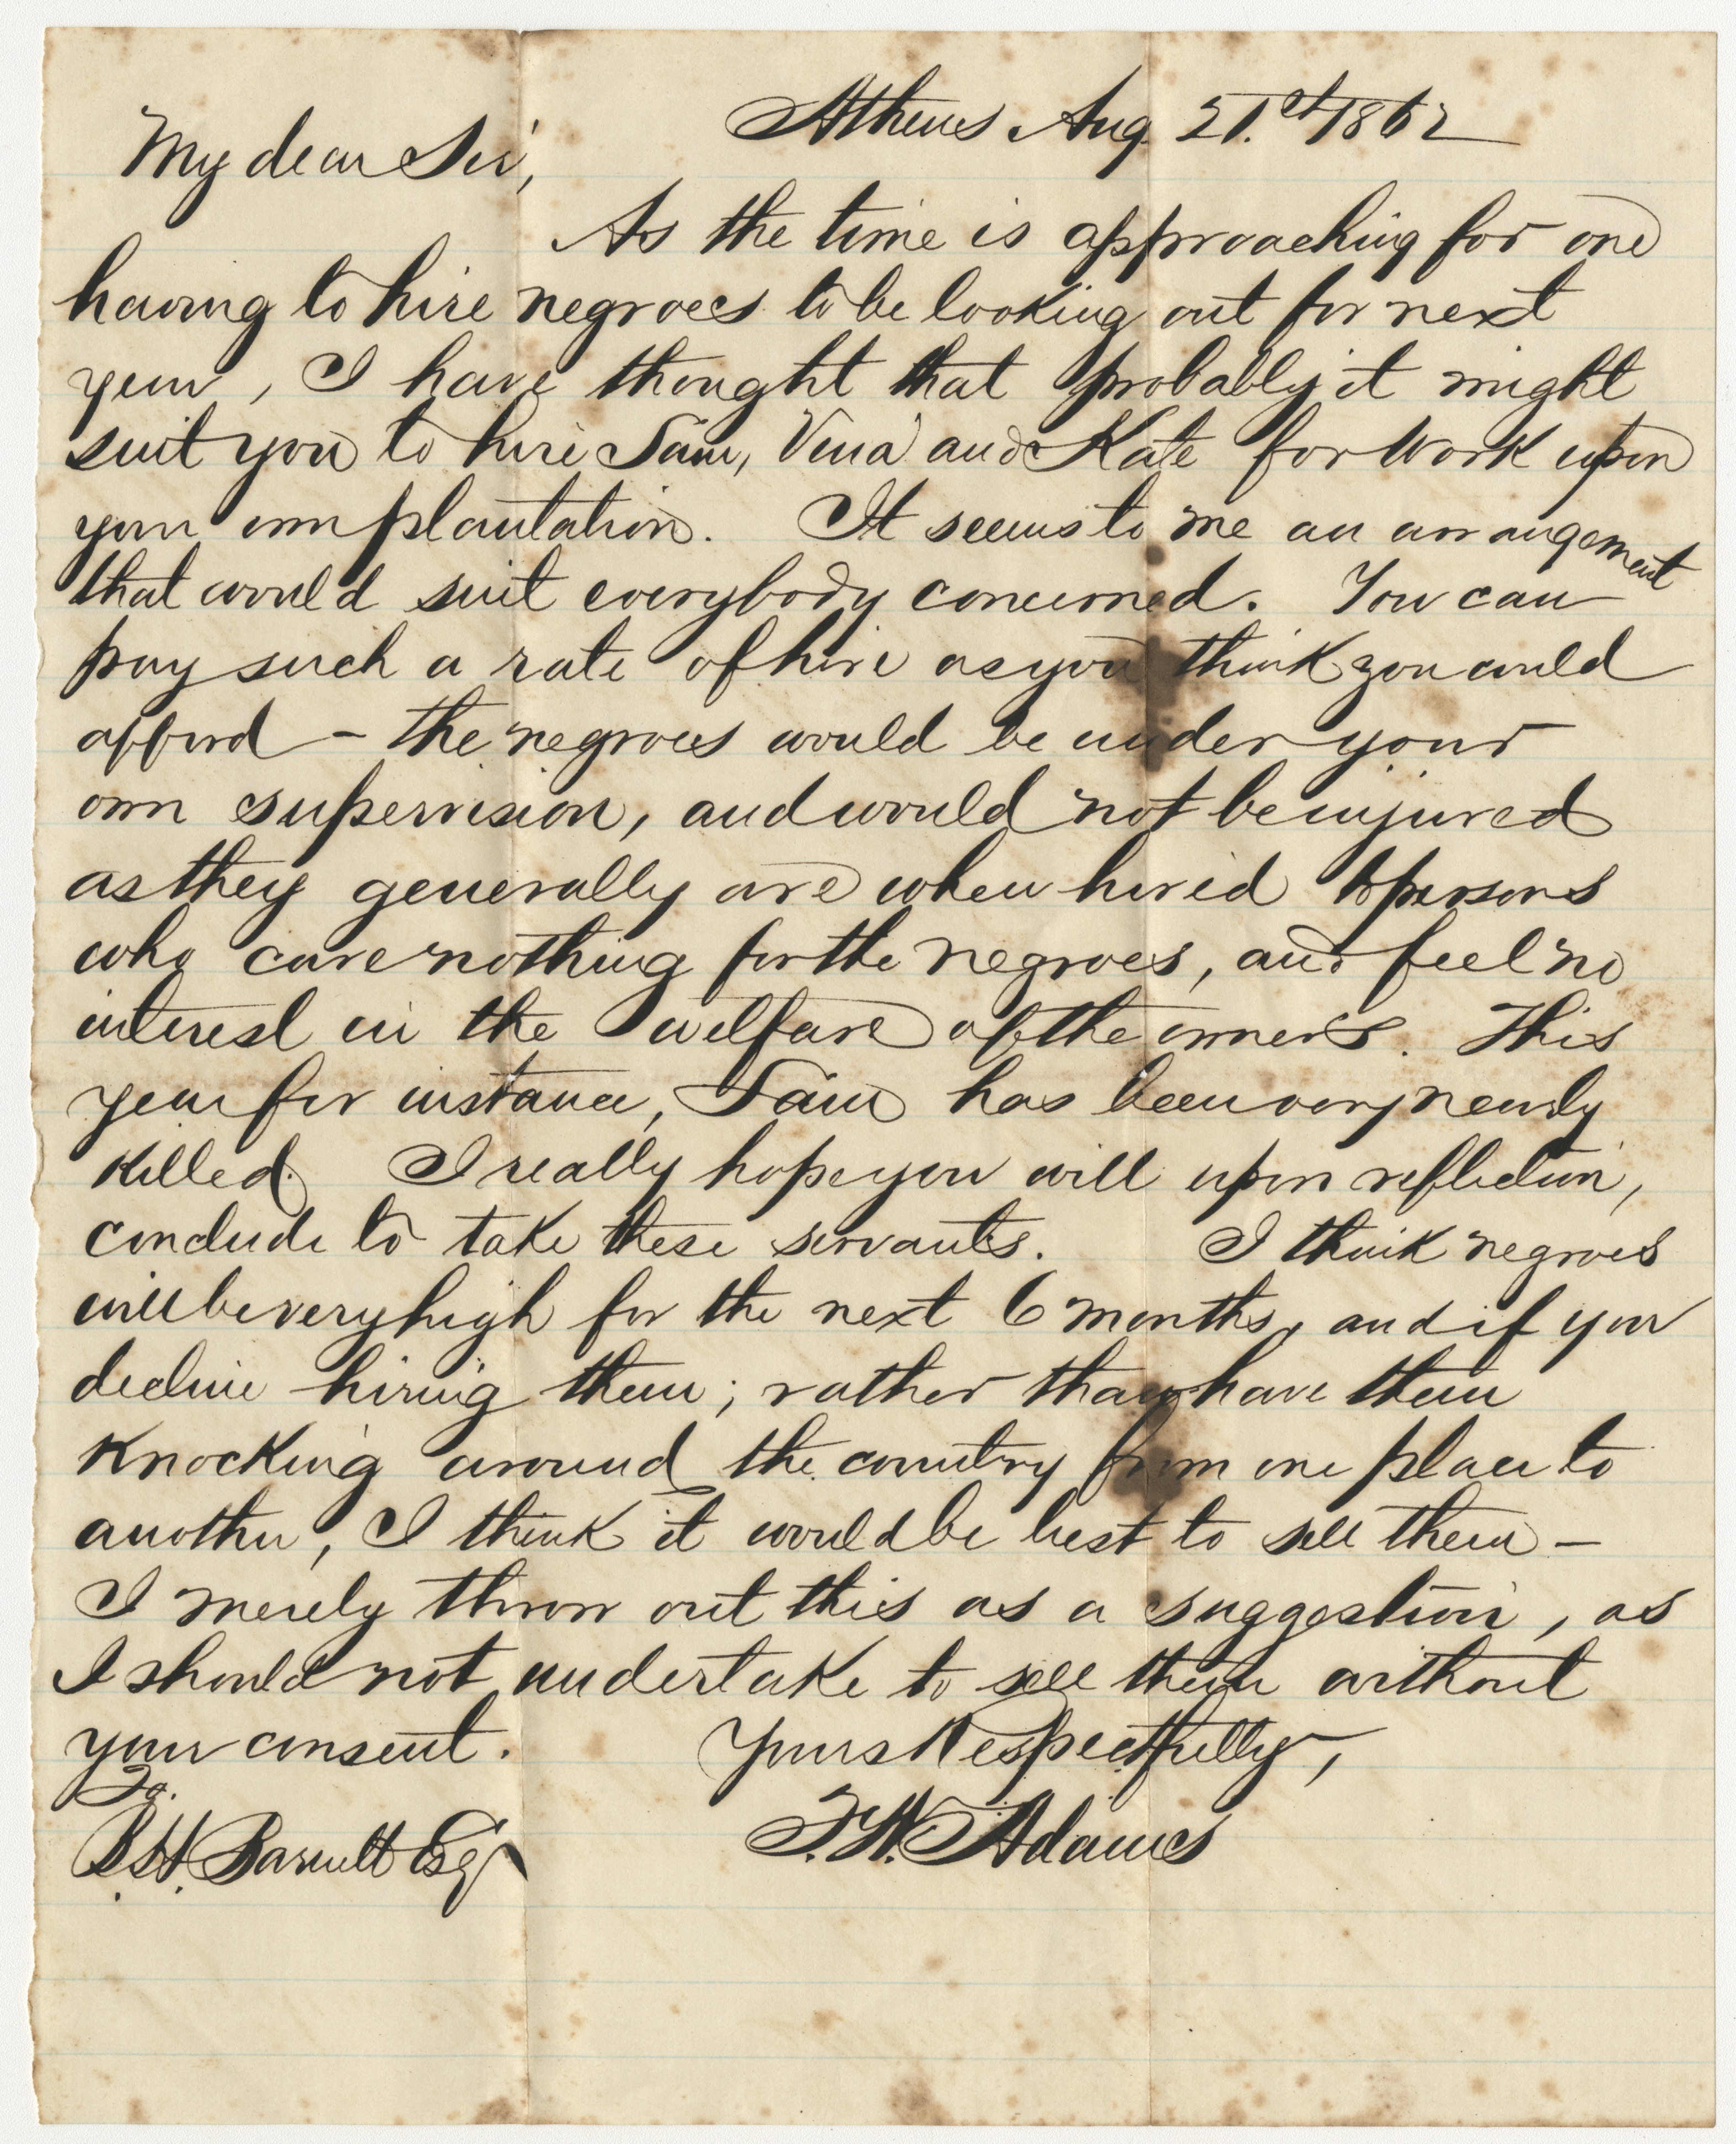 Athens Aug. 21.st 1862
My dear Sir,
As the time is approaching for one
having to hire negroes to be looking out for next
year, I have thought that probably it might
suit you to hire Sam, Vina and Kate for work upon
your own plantation. It seems to me an arrangement
that would suit everybody concerned. You can
pay such a rate of hire as you think you could
afford – the negroes would be under your
own supervision, and would not be injured
as they generally are when hired to persons
who care nothing for the negroes, and feel no
interest in the welfare of the owners. This
year for instance, Sam has been very nearly
killed. I really hope you will upon reflection,
conclude to take these servants. I think negroes
will be very high for the next 6 months, and if you
decline hiring them; rather than have them
knocking around the country from one place to
another, I think it would be best to sell them –
I merely throw out this as a suggestion, as
I should not undertake to sell them without
your consent. Yours Respectfully,
To.
Barnett Esq. Adams